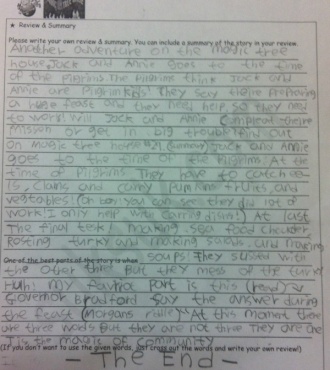 ★ Review & Summary
Please write your own review & summary. You can include a summary of the story in your review.
Another adventure on the magic tree
house, Jack and Annie goes to the time
of the pilgrims. The pilgrims think Jack and
Annie are Pilgrim kids! They say they're preparing
a huge feast and they need help, so they need
to work! Will Jack and Annie compleat there
mission or get in big trouble? Find out
on magic tree house #27. (Summary) Jack and Annie
goes to the time of the Pilgrims. At the
time of Pilgrims. They have to catch
is, clams, and carry pumpkins fruits, and
vegetables! (Oh boy, you can see they did lot of
work! I only help with carring dishs!) At last
The final test! making sea food chouder,
Rosting turky and making salads, and making
One of the best parts of the story is when soups. They started with
the other things But they mess of the turky
Huh! my favorit part is this (read)
Governor Bradford say the answer during
the feast (Morgans riddle) "At this moment there
are three words But they are not three They are one
It is the magic of community
(If you don't want to use the given words, just cross out the words and write your own review!)
- The End -